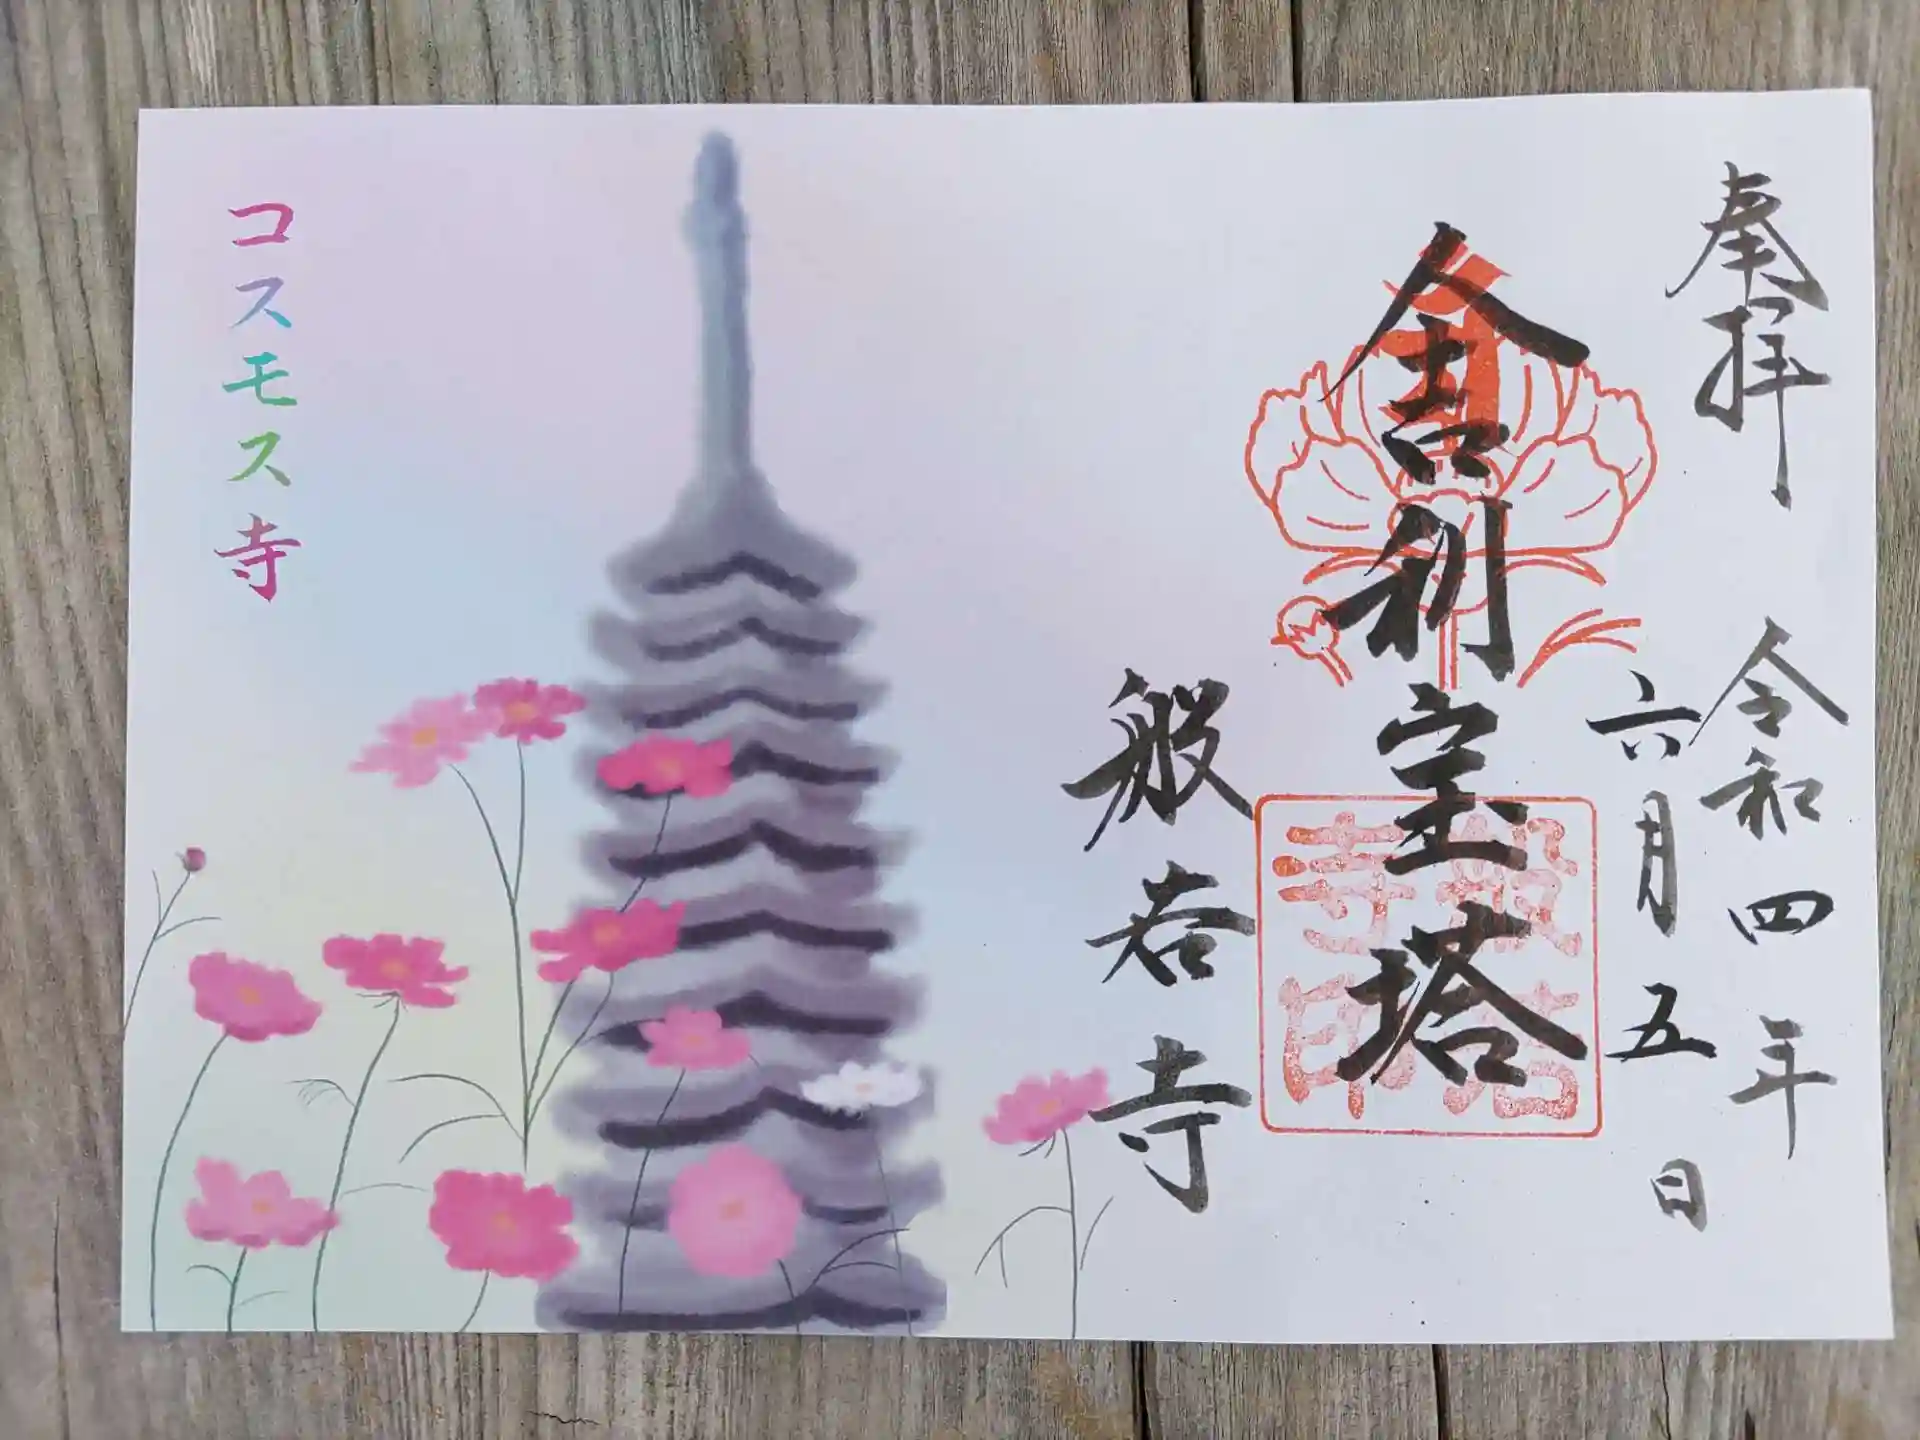 奉拝
令和四年
六月五日
舎利宝塔
般若寺
般若
寺印
コスモス寺